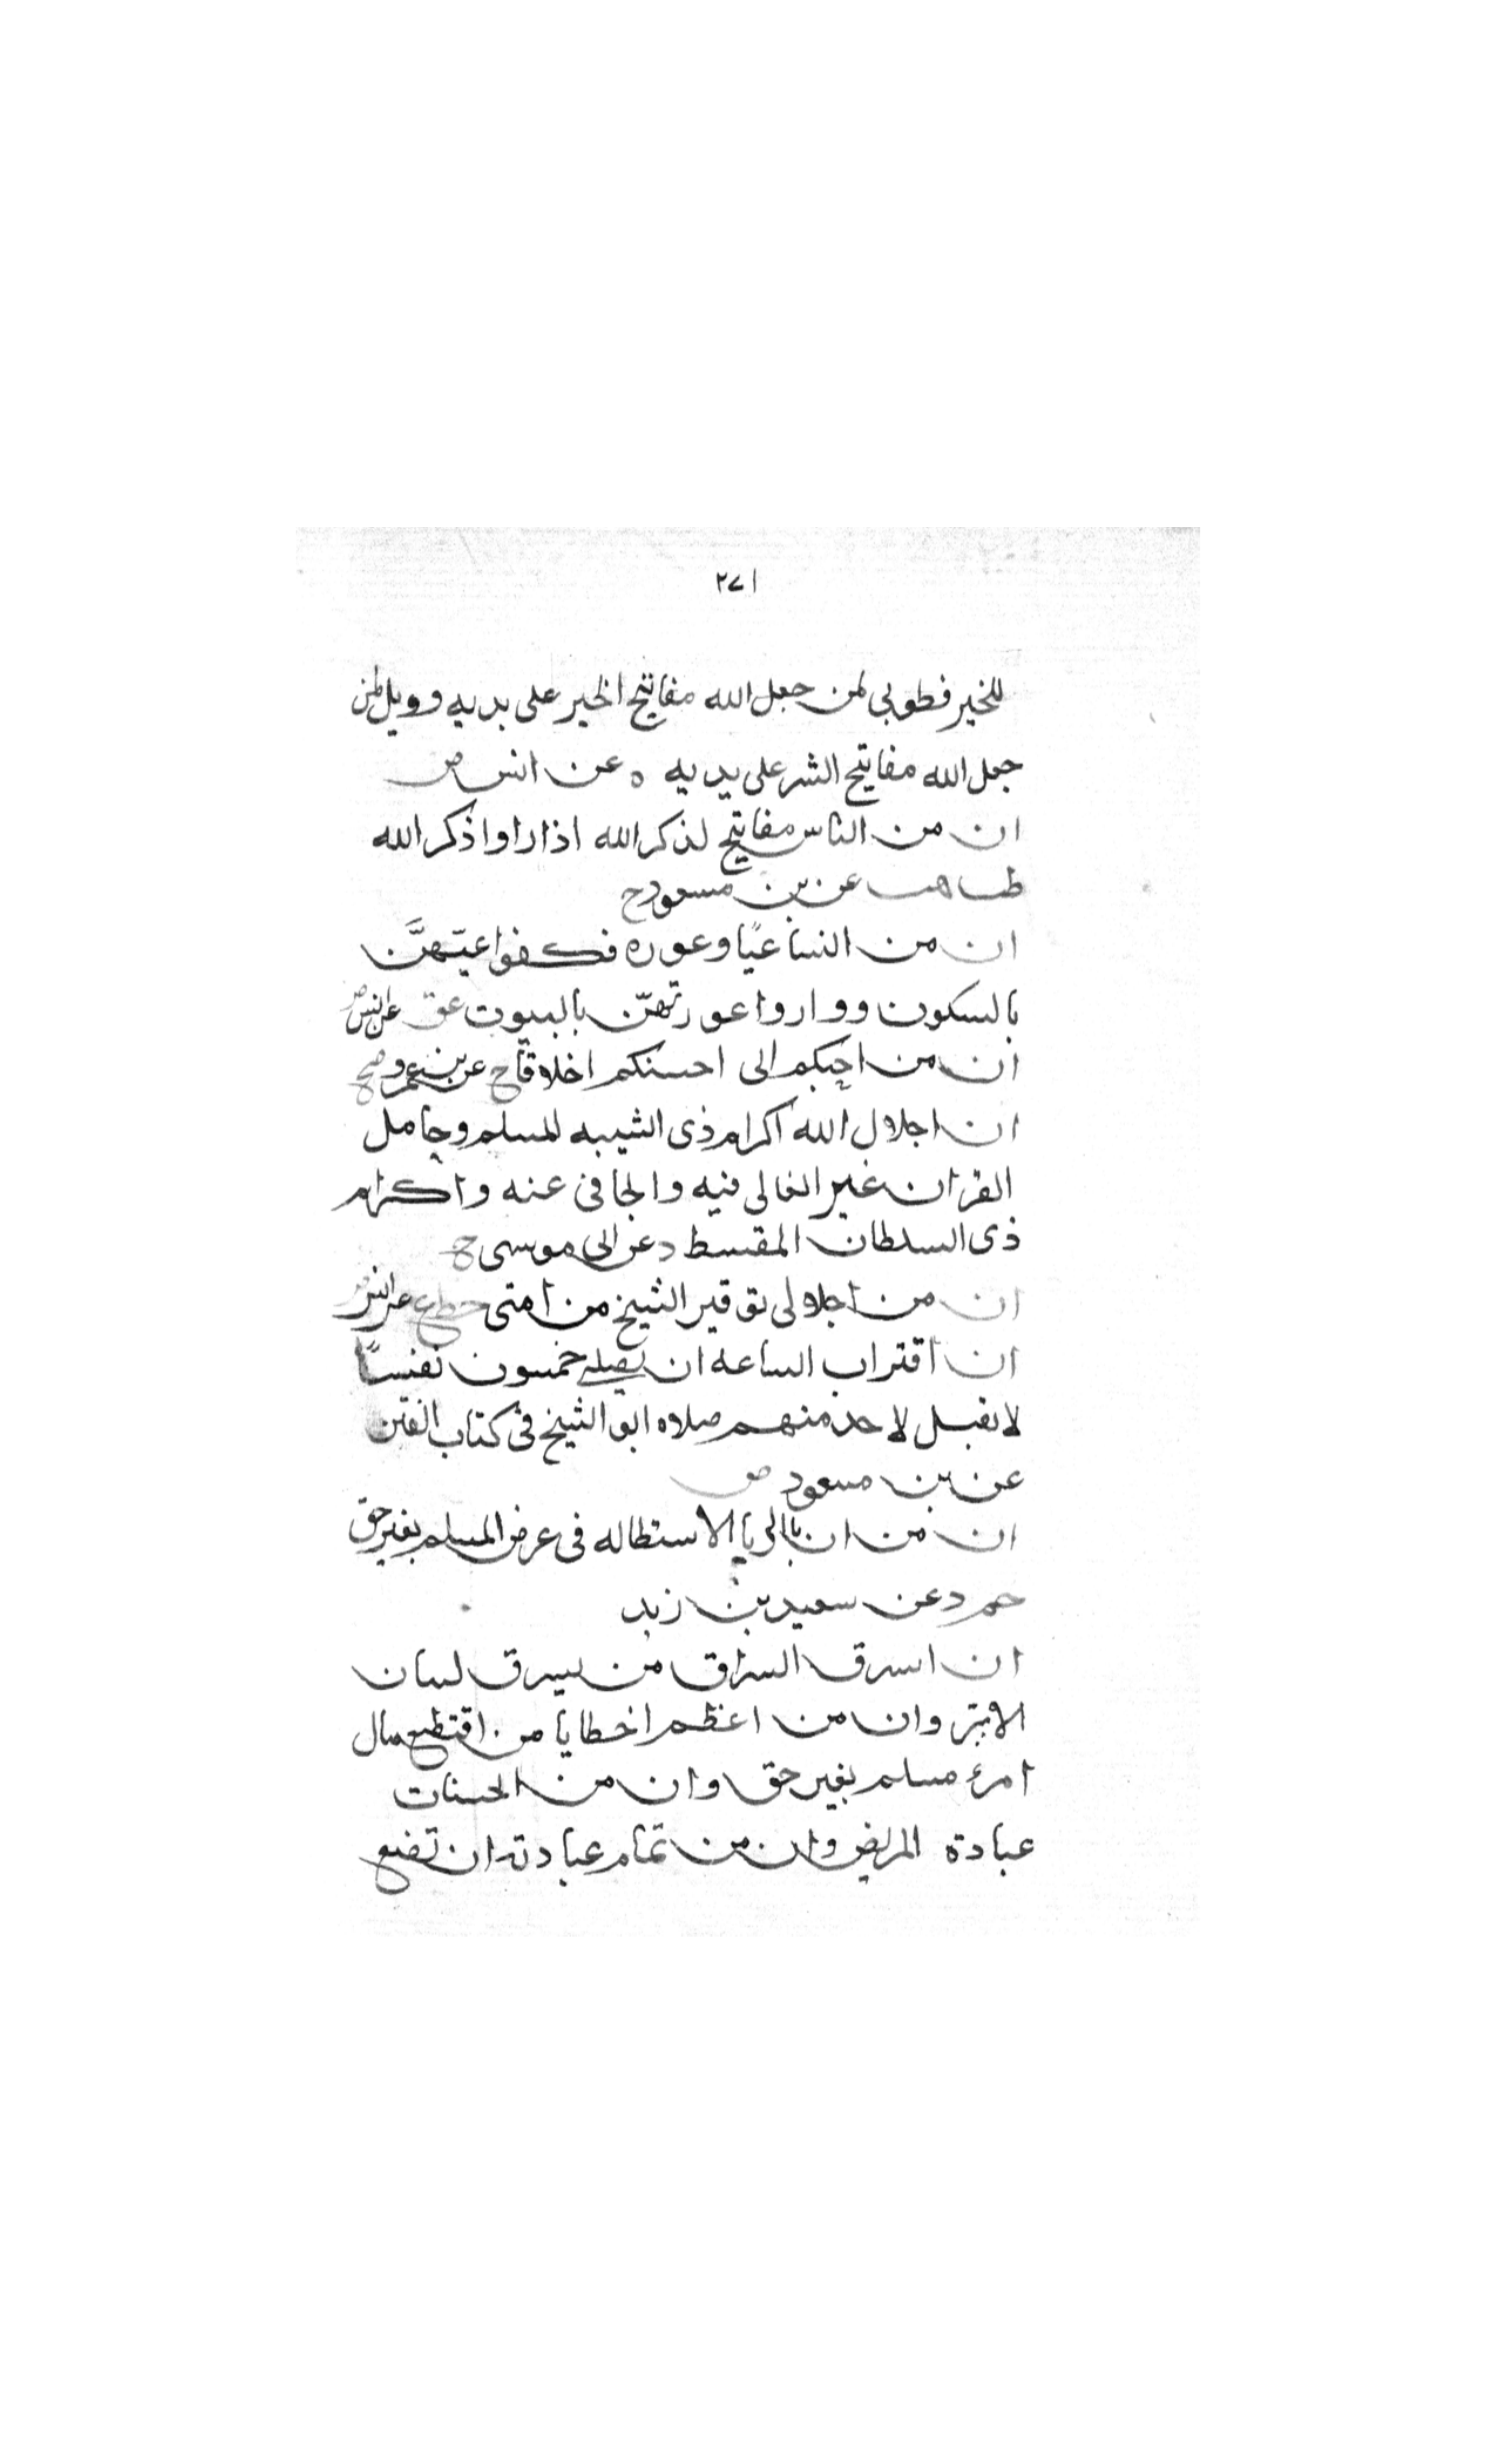 ٢٧١
للخير فطوبى لمن جعل الله مفاتيح الخير على يديه وويل لمن
جعل الله مفاتيح الشر على يديه ه عن انس ض
ان من الناس مفاتيح لذكر الله اذا راوا ذكر الله
طب هب عن بن مسعود ح
ان من النسا عيّا وعوره فكفوا عيّهنَّ
بالسكون وواروا عورتهنّ بالبيوت عق عن انس ض
ان من احبكم الى احسنكم اخلاقا خ عن بن عمرو صح
ان اجلال الله اكرام ذى الشيبه المسلم وحامل
القران غير الغالى فيه والجافى عنه واكرام
ذى السلطان المقسط د عن ابى موسى ح
ان من اجلالى توقير الشيخ من امتى خط عن انس ض
ان اقتراب الساعه ان يصلى خمسون نفسًا
لا تقبل لاحد منهم صلاه ابو الشيخ فى كتاب الفتن
عن بن مسعود ض
ان من اربا الربا الاستطاله فى عرض المسلم بغير حق
حم د عن سعيد بن زيد
ان اسرق السراق من يسرق لسان
الامير وان من اعظم اخطايا من اقتطع مال
امرء مسلم بغير حق وان من الحسنات
عيادة المريض وان من تمام عيادته ان تضع